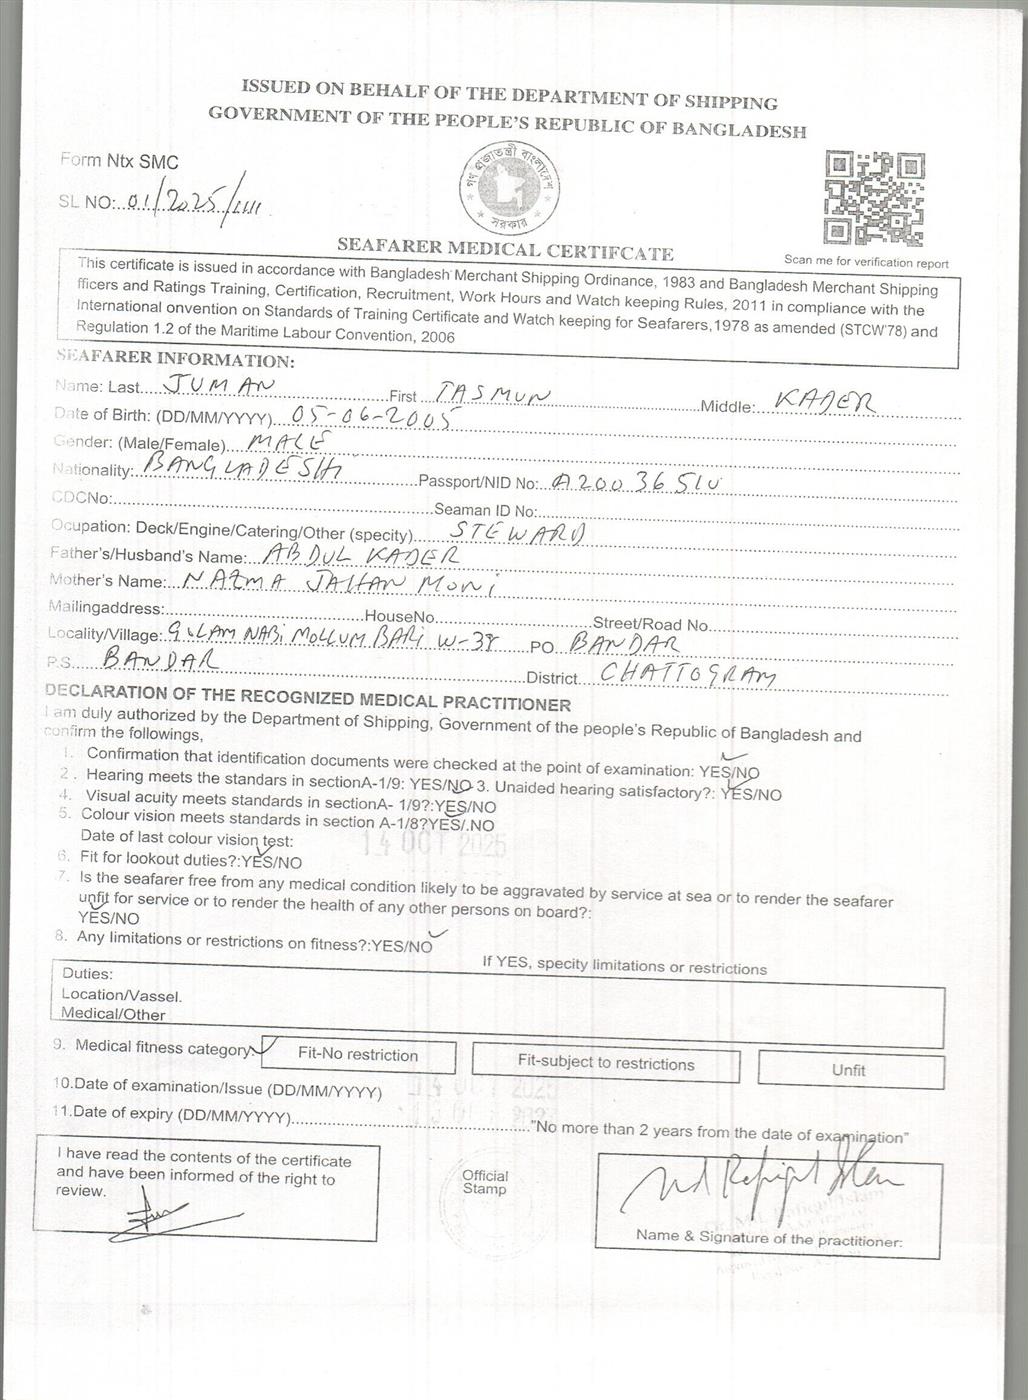 ISSUED ON BEHALF OF THE DEPARTMENT OF SHIPPING
GOVERNMENT OF THE PEOPLE'S REPUBLIC OF BANGLADESH
Form Ntx SMC
SL NO:..01/2025/1111
গণপ্রজাতন্ত্রী বাংলাদেশ
সরকার
Scan me for verification report
SEAFARER MEDICAL CERTIFCATE
This certificate is issued in accordance with Bangladesh Merchant Shipping Ordinance, 1983 and Bangladesh Merchant Shipping
fficers and Ratings Training, Certification, Recruitment, Work Hours and Watch keeping Rules, 2011 in compliance with the
International onvention on Standards of Training Certificate and Watch keeping for Seafarers,1978 as amended (STCW'78) and
Regulation 1.2 of the Maritime Labour Convention, 2006
SEAFARER INFORMATION:
Name: Last....JUMAN First TASMUN Middle: KADER
Date of Birth: (DD/MM/YYYY) 05-06-2005
Gender: (Male/Female) MALE
Nationality: BANGLADESHI Passport/NID No: A20036510
CDCNo: Seaman ID No:
Ocupation: Deck/Engine/Catering/Other (specify) STEWARD
Father's/Husband's Name: ABDUL KADER
Mother's Name: NAZMA JAHAN MONI
Mailingaddress: HouseNo Street/Road No
Locality/Village: GULAM NABI MOLLUM BARI W-38 PO BANDAR
P.S. BANDAR District CHATTOGRAM
DECLARATION OF THE RECOGNIZED MEDICAL PRACTITIONER
I am duly authorized by the Department of Shipping, Government of the people's Republic of Bangladesh and
confirm the followings,
1. Confirmation that identification documents were checked at the point of examination: YES/NO
2. Hearing meets the standars in sectionA-1/9: YES/NO 3. Unaided hearing satisfactory?: YES/NO
4. Visual acuity meets standards in sectionA- 1/9?:YES/NO
5. Colour vision meets standards in section A-1/8?YES/.NO
Date of last colour vision test: 14 OCT 2025
6. Fit for lookout duties?:YES/NO
7. Is the seafarer free from any medical condition likely to be aggravated by service at sea or to render the seafarer
unfit for service or to render the health of any other persons on board?:
YES/NO
8. Any limitations or restrictions on fitness?:YES/NO
If YES, specity limitations or restrictions
Duties:
Location/Vassel.
Medical/Other
9. Medical fitness category Fit-No restriction Fit-subject to restrictions Unfit
10.Date of examination/Issue (DD/MM/YYYY) 14 OCT 2025
11.Date of expiry (DD/MM/YYYY) "No more than 2 years from the date of examination"
I have read the contents of the certificate
and have been informed of the right to
review.
Official
Stamp
Md Rafiqul Islam
Name & Signature of the practitioner: